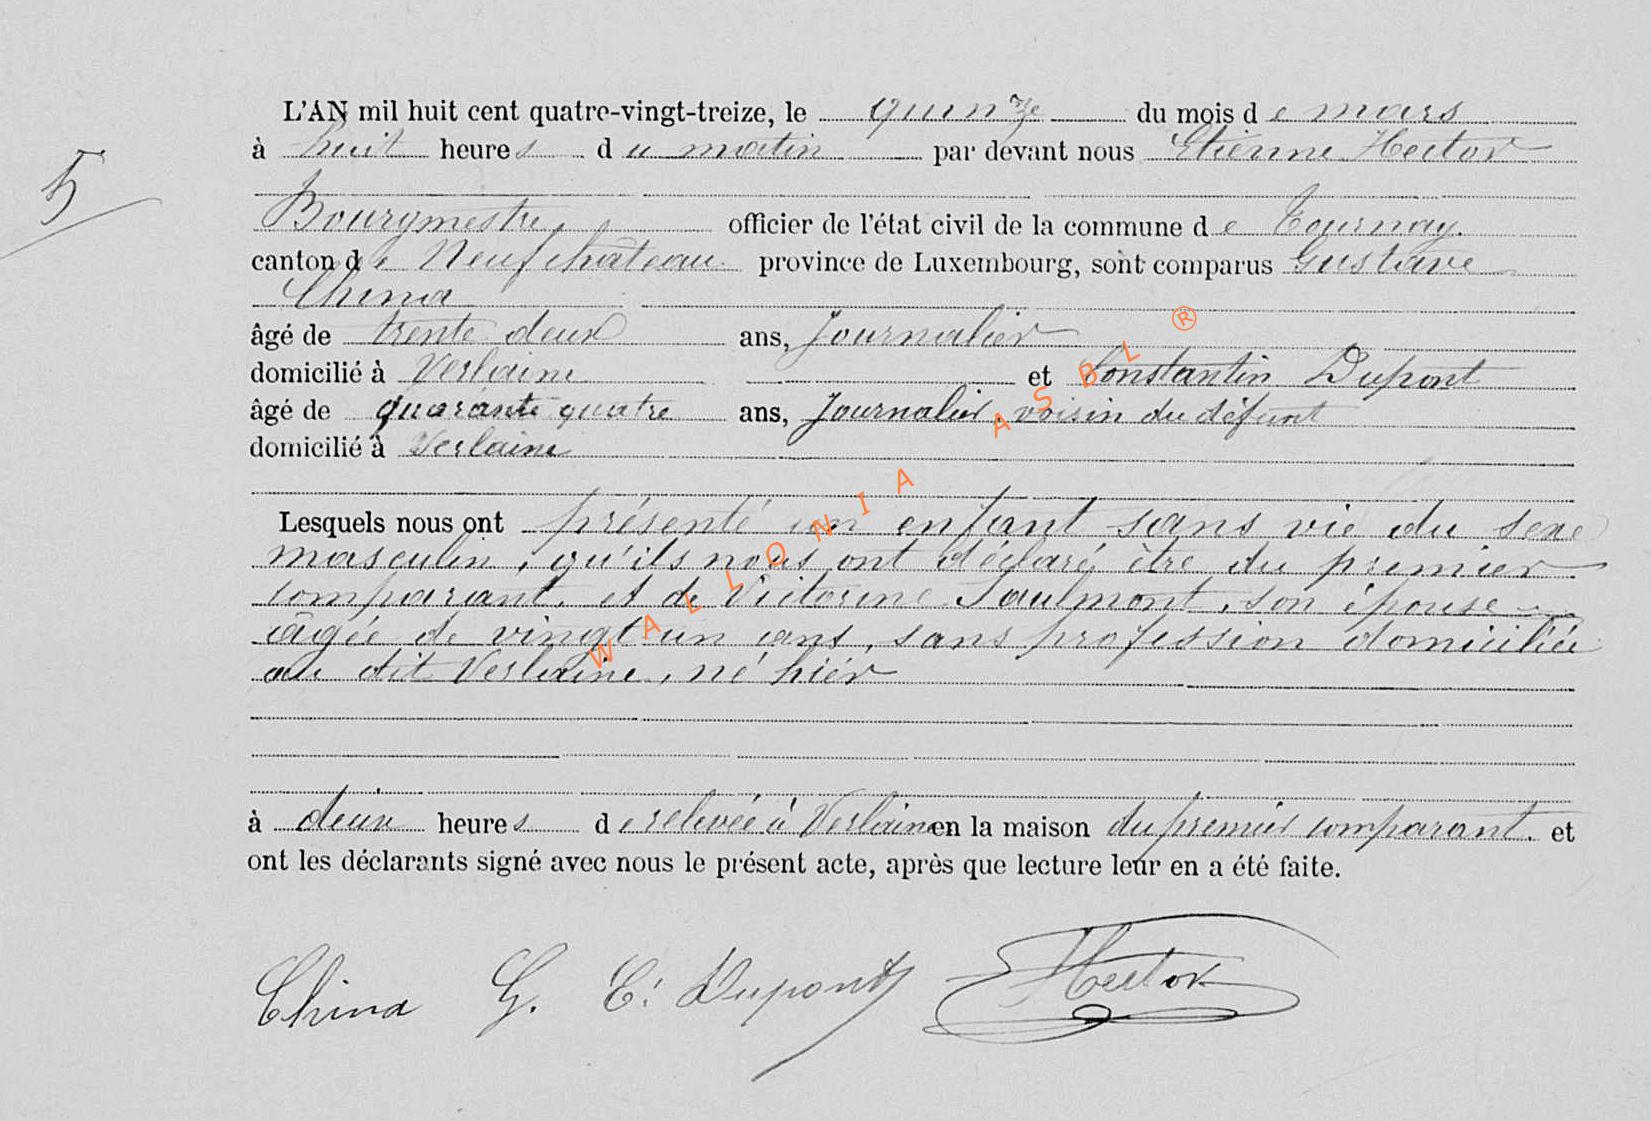 L'AN mil huit cent quatre-vingt-treize, le quinze du mois de mars
à huit heures du matin par devant nous Etienne Hector
5
Bourgmestre, officier de l'état civil de la commune de Tournay.
canton de Neufchâteau province de Luxembourg, sont comparus Gustave
China
âgé de trente deux ans, Journalier
domicilié à Verlaine et Constantin Dupont
âgé de quarante quatre ans, Journalier, voisin du défunt
domicilié à Verlaine
Lesquels nous ont présenté un enfant sans vie du sexe
masculin, qu'ils nous ont déclaré être du premier
comparant, et de Victorine Saulmont, son épouse
âgée de vingt un ans, sans profession domiciliée
au dit Verlaine, né hier
à deux heures de relevée à Verlaine en la maison du premier comparant. et
ont les déclarants signé avec nous le présent acte, après que lecture leur en a été faite.
China G. C. Dupont Hector
WALLONIA ASBL ®